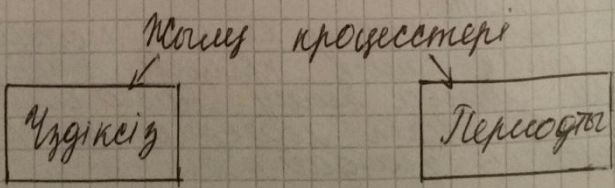 Жылу процесстері
Үздіксіз
Периодты